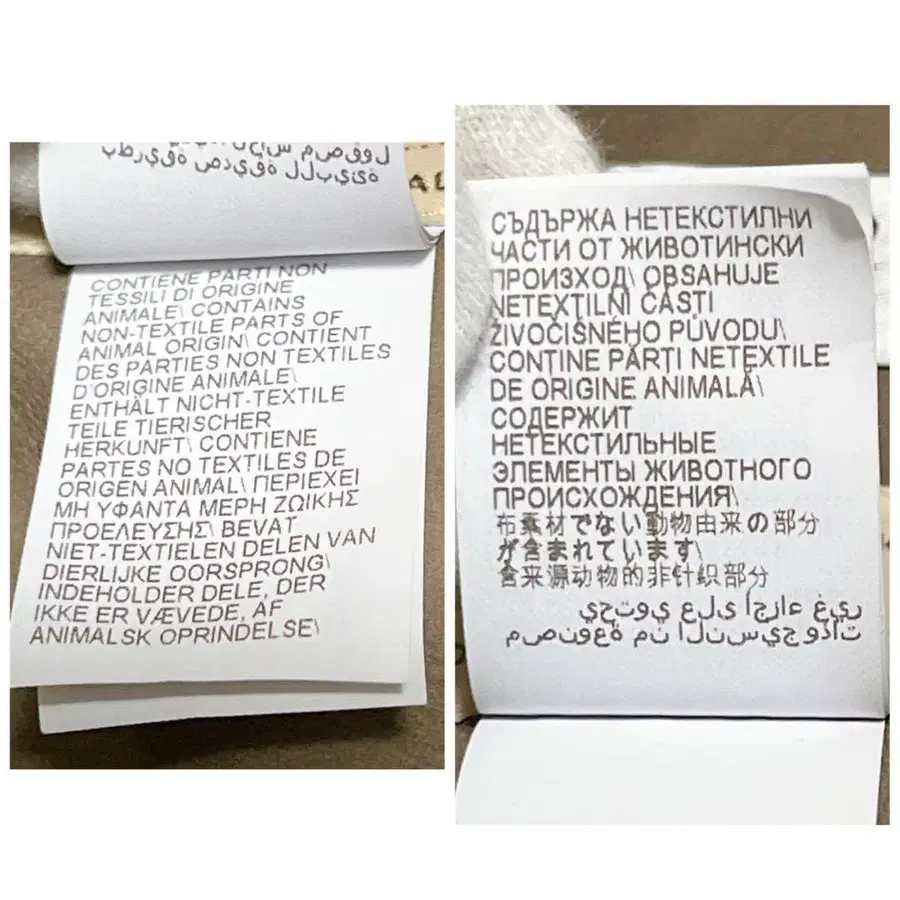 ةئيبلل ةقيدص ةقيرطب
CONTIENE PARTI NON
TESSILI DI ORIGINE
ANIMALE\ CONTAINS
NON-TEXTILE PARTS OF
ANIMAL ORIGIN\ CONTIENT
DES PARTIES NON TEXTILES
D'ORIGINE ANIMALE\
ENTHÄLT NICHT-TEXTILE
TEILE TIERISCHER
HERKUNFT\ CONTIENE
PARTES NO TEXTILES DE
ORIGEN ANIMAL\ ΠΕΡΙΕΧΕΙ
ΜΗ ΥΦΑΝΤΑ ΜΕΡΗ ΖΩΙΚΗΣ
ΠΡΟΕΛΕΥΣΗΣ\ BEVAT
NIET-TEXTIELEN DELEN VAN
DIERLIJKE OORSPRONG\
INDEHOLDER DELE, DER
IKKE ER VÆVEDE, AF
ANIMALSK OPRINDELSE\
СЪДЪРЖА НЕТЕКСТИЛНИ
ЧАСТИ ОТ ЖИВОТИНСКИ
ПРОИЗХОД\ OBSAHUJE
NETEXTILNÍ ČÁSTI
ŽIVOČIŠNÉHO PŮVODU\
CONȚINE PĂRȚI NETEXTILE
DE ORIGINE ANIMALĂ\
СОДЕРЖИТ
НЕТЕКСТИЛЬНЫЕ
ЭЛЕМЕНТЫ ЖИВОТНОГО
ПРОИСХОЖДЕНИЯ\
布素材でない動物由来の部分
が含まれています\
含来源动物的非针织部分
ريغ ءازجا ىلع يوتحي
تاذو جيسنلا نم ةعونصم